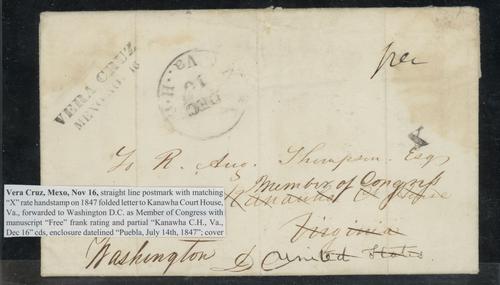 VERA CRUZ
MEXO. NO. 16
H. Va
DEC
free
To R. Aug. Thompson Esq
Member of Congress
Kanawha C. House
Virginia
Washington D C United States
Vera Cruz, Mexo, Nov 16, straight line postmark with matching
"X" rate handstamp on 1847 folded letter to Kanawha Court House,
Va., forwarded to Washington D.C. as Member of Congress with
manuscript "Free" frank rating and partial "Kanawha C.H., Va.,
Dec 16" cds, enclosure datelined "Puebla, July 14th, 1847"; cover